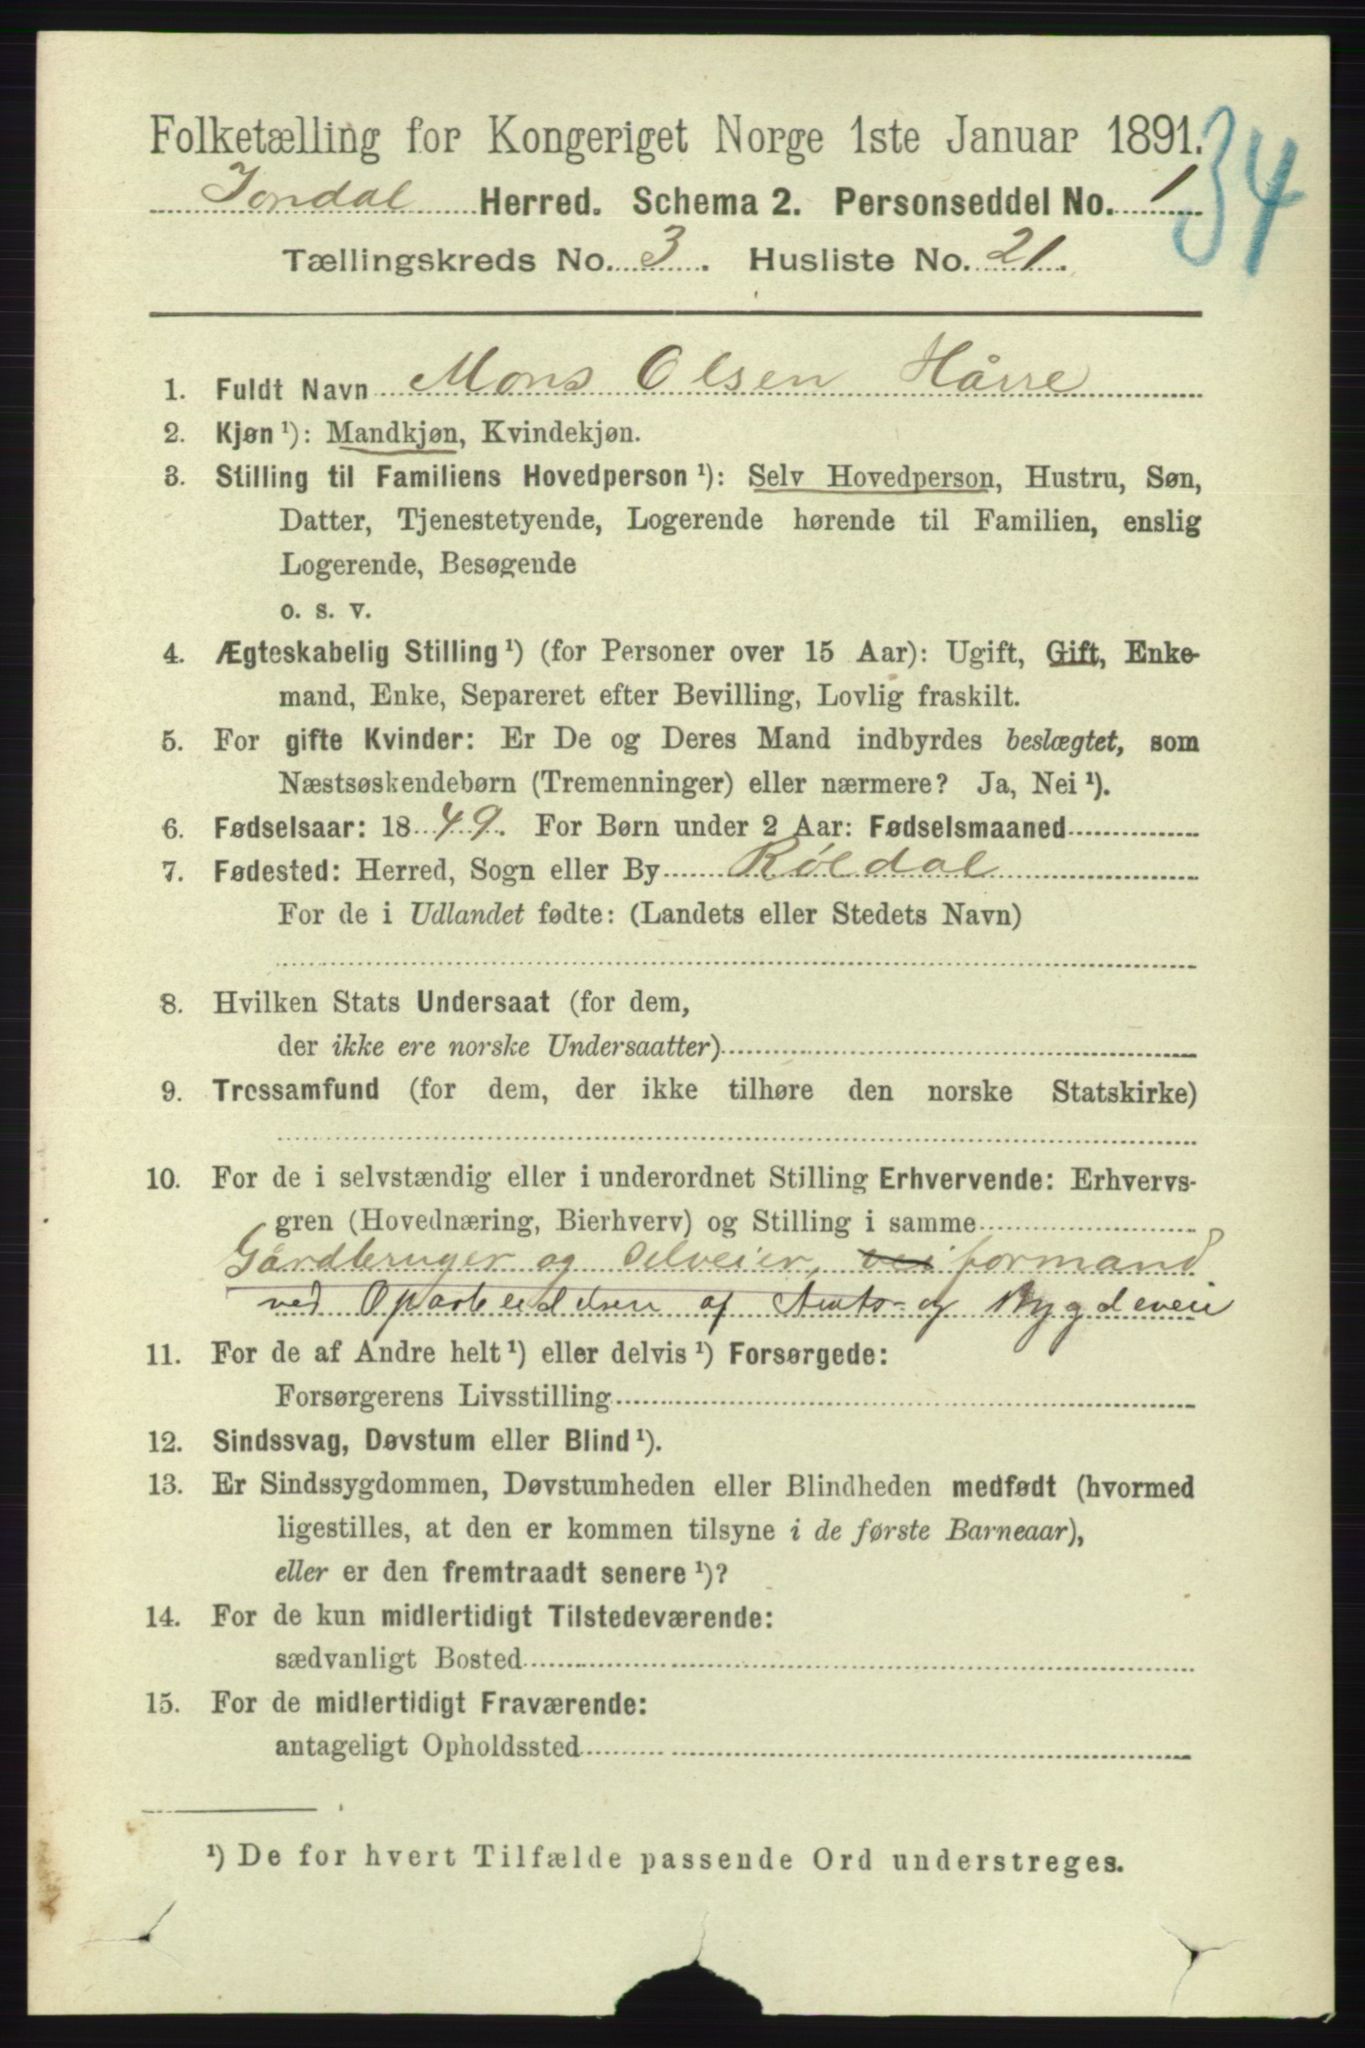 Folketælling for Kongeriget Norge 1ste Januar 1891. 34
Jondal Herred. Schema 2. Personseddel No. 1
Tællingskreds No. 3. Husliste No. 21.
1. Fuldt Navn Mons Olsen Hårre
2. Kjøn ¹): Mandkjøn, Kvindekjøn.
3. Stilling til Familiens Hovedperson ¹): Selv Hovedperson, Hustru, Søn,
Datter, Tjenestetyende, Logerende hørende til Familien, enslig
Logerende, Besøgende
o. s. v.
4. Ægteskabelig Stilling ¹) (for Personer over 15 Aar): Ugift, Gift, Enke-
mand, Enke, Separeret efter Bevilling, Lovlig fraskilt.
5. For gifte Kvinder: Er De og Deres Mand indbyrdes beslægtet, som
Næstsøskendebørn (Tremenninger) eller nærmere? Ja, Nei ¹).
6. Fødselsaar: 1849. For Børn under 2 Aar: Fødselsmaaned
7. Fødested: Herred, Sogn eller By Røldal
For de i Udlandet fødte: (Landets eller Stedets Navn)
8. Hvilken Stats Undersaat (for dem,
der ikke ere norske Undersaatter)
9. Trossamfund (for dem, der ikke tilhøre den norske Statskirke)
10. For de i selvstændig eller i underordnet Stilling Erhvervende: Erhvervs-
gren (Hovednæring, Bierhverv) og Stilling i samme
Gårdbruger og Selveier, vei formand
ved Oparbeidelsen af Amts- og Bygdeveie
11. For de af Andre helt ¹) eller delvis ¹) Forsørgede:
Forsørgerens Livsstilling
12. Sindssvag, Døvstum eller Blind ¹).
13. Er Sindssygdommen, Døvstumheden eller Blindheden medfødt (hvormed
ligestilles, at den er kommen tilsyne i de første Barneaar),
eller er den fremtraadt senere ¹)?
14. For de kun midlertidigt Tilstedeværende:
sædvanligt Bosted
15. For de midlertidigt Fraværende:
antageligt Opholdssted
¹) De for hvert Tilfælde passende Ord understreges.